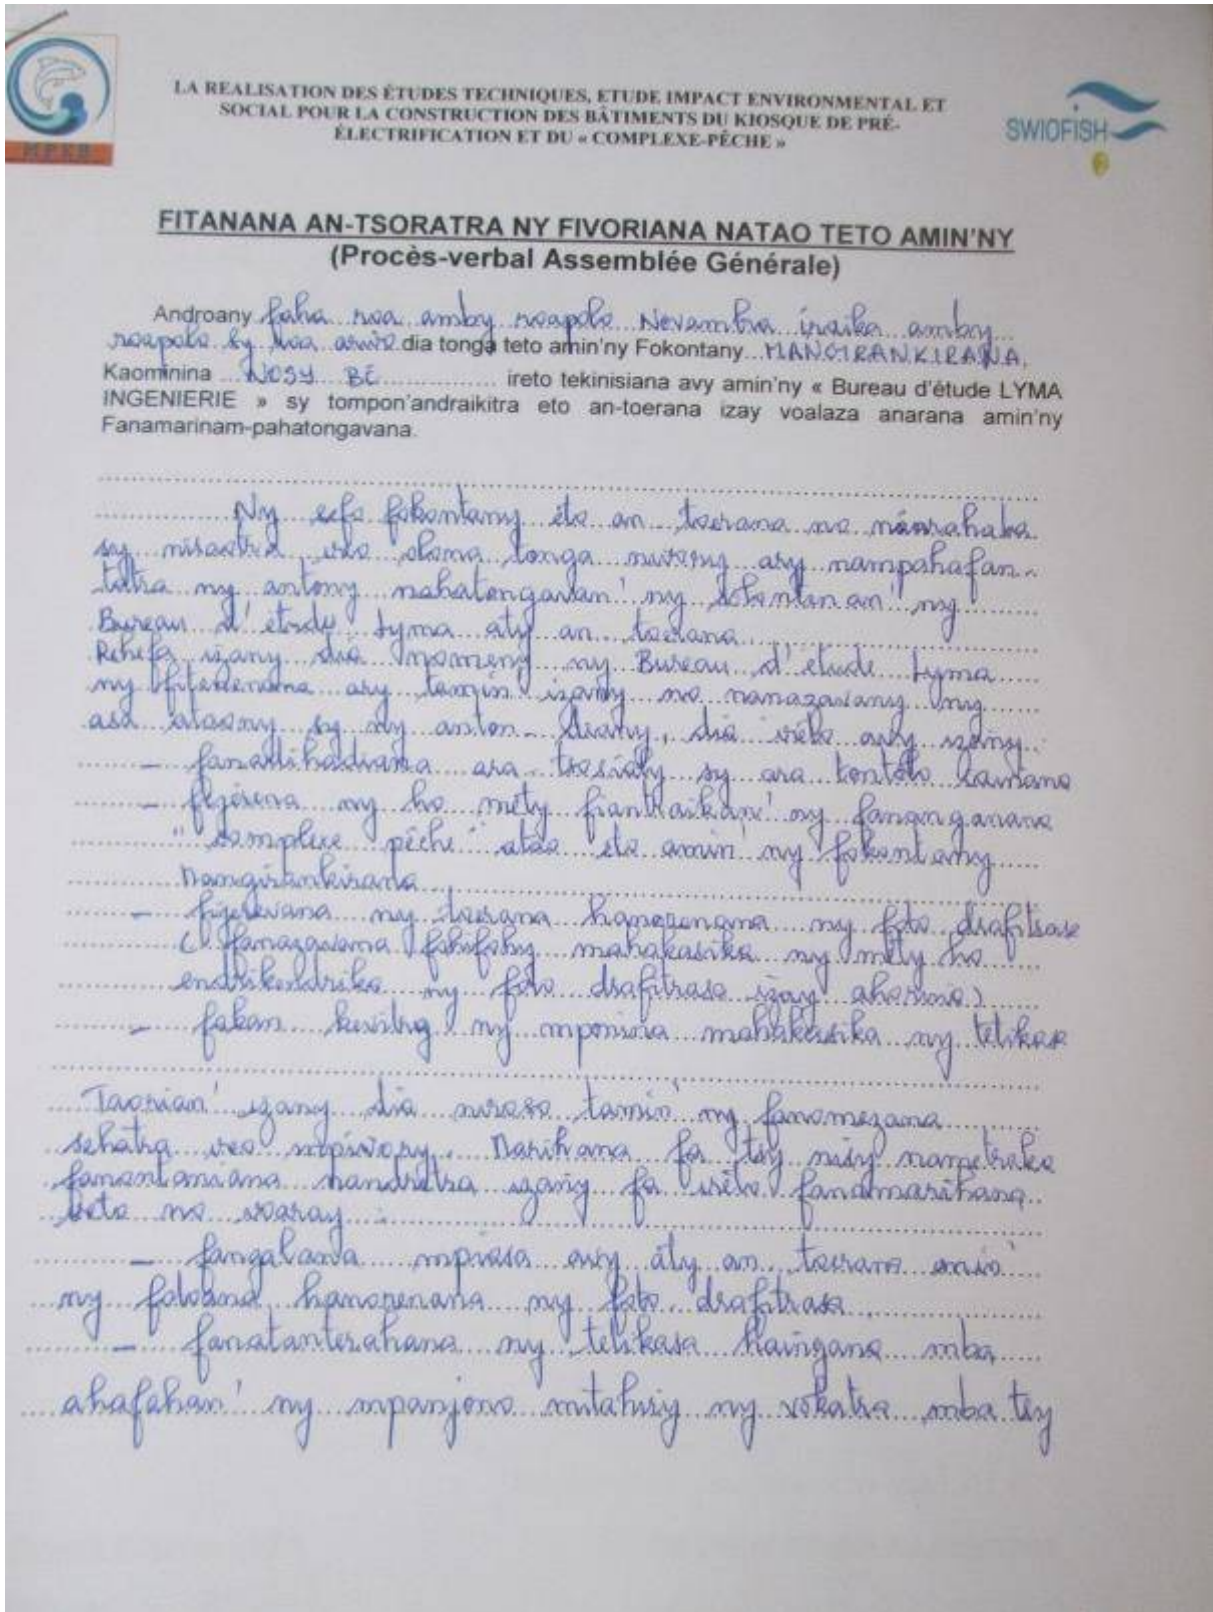 MPEB
LA REALISATION DES ÉTUDES TECHNIQUES, ETUDE IMPACT ENVIRONMENTAL ET
SOCIAL POUR LA CONSTRUCTION DES BÂTIMENTS DU KIOSQUE DE PRÉ-
ÉLECTRIFICATION ET DU « COMPLEXE-PÊCHE »
SWIOFISH
2
FITANANA AN-TSORATRA NY FIVORIANA NATAO TETO AMIN'NY
(Procès-verbal Assemblée Générale)
Androany faha roa amby roapolo Novambra iraika amby
roapolo sy roa arivo dia tonga teto amin'ny Fokontany MANGIRANKIRANA,
Kaominina NOSY BE ireto tekinisiana avy amin'ny « Bureau d'étude LYMA
INGENIERIE » sy tompon'andraikitra eto an-toerana izay voalaza anarana amin'ny
Fanamarinam-pahatongavana.
Ny sefo fokontany eto an toerana no niarahaba
sy nisaotra ireo olona tonga nivory ary nampahafan-
tatra ny antony nahatongavan' ny solontenan' ny
Bureau d' étude Lyma aty an toerana
Rehefa izany dia nomeny ny Bureau d' etude Lyma
ny fitenenana ary tamin' izany no nanazavany ny
asa ataony sy ny anton - diany, dia ireto avy izany:
- fanadihadiana ara tsosialy sy ara tontolo iainana
- fijerena ny ho mety fiantraikan' ny fananganana
" complexe pêche " atao eto amin' ny fokontany
Mangirankirana
- fijerevana ny toerana hanorenana ny foto drafitrase
( fanazavana fohifohy mahakasika ny mety ho
endrikendrika ny foto drafitrasa izay ahorina)
- fakan kevitry ny mponina mahakasika ny tetikasa
Taorian' izany dia niroso tamin' ny fanomezana
sehatra ireo mpivory. Marihana fa tsy nisy nametraka
fanontaniana nandritra izany fa ireto fanamarihana
teto no voaray :
- fangalana mpiasa avy aty an toerana amin'
ny fotoana hanorenana ny foto drafitrasa
- fanatanterahana ny tetikasa haingana mba
ahafahan' ny mpanjono mitahiry ny vokatra mba tsy